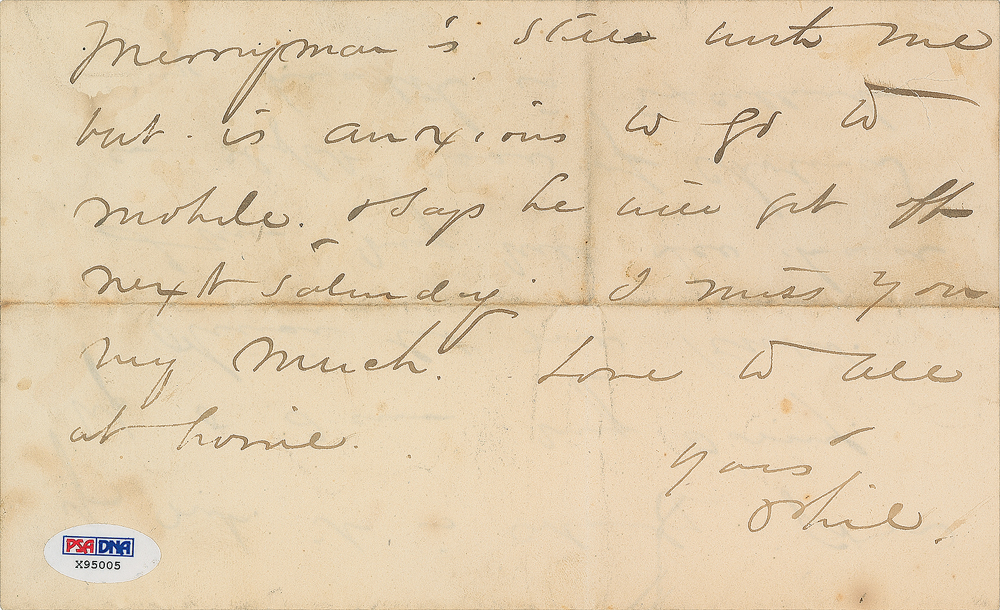 Merryman is still with me
but is anxious to go to
Mobile. & says he will get off
next Saturday. I miss you
very much. Love to all
at home.
yours
Phil.
PSA DNA
X95005